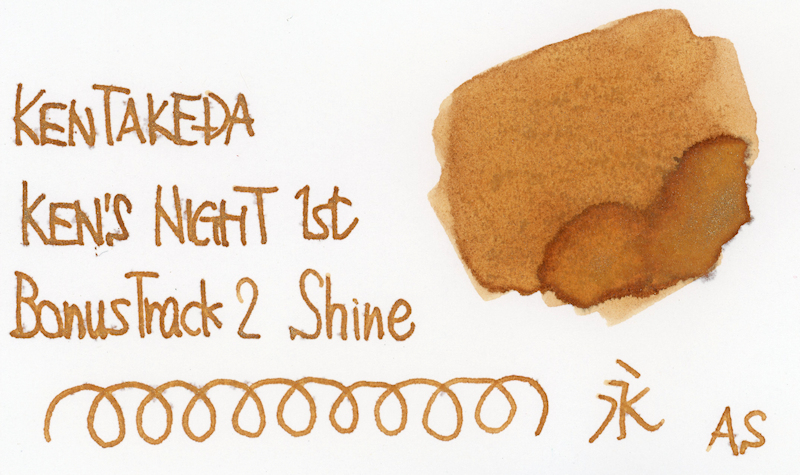 KENTAKEDA
KEN'S NIGHT 1st
BonusTrack 2 Shine
永
AS